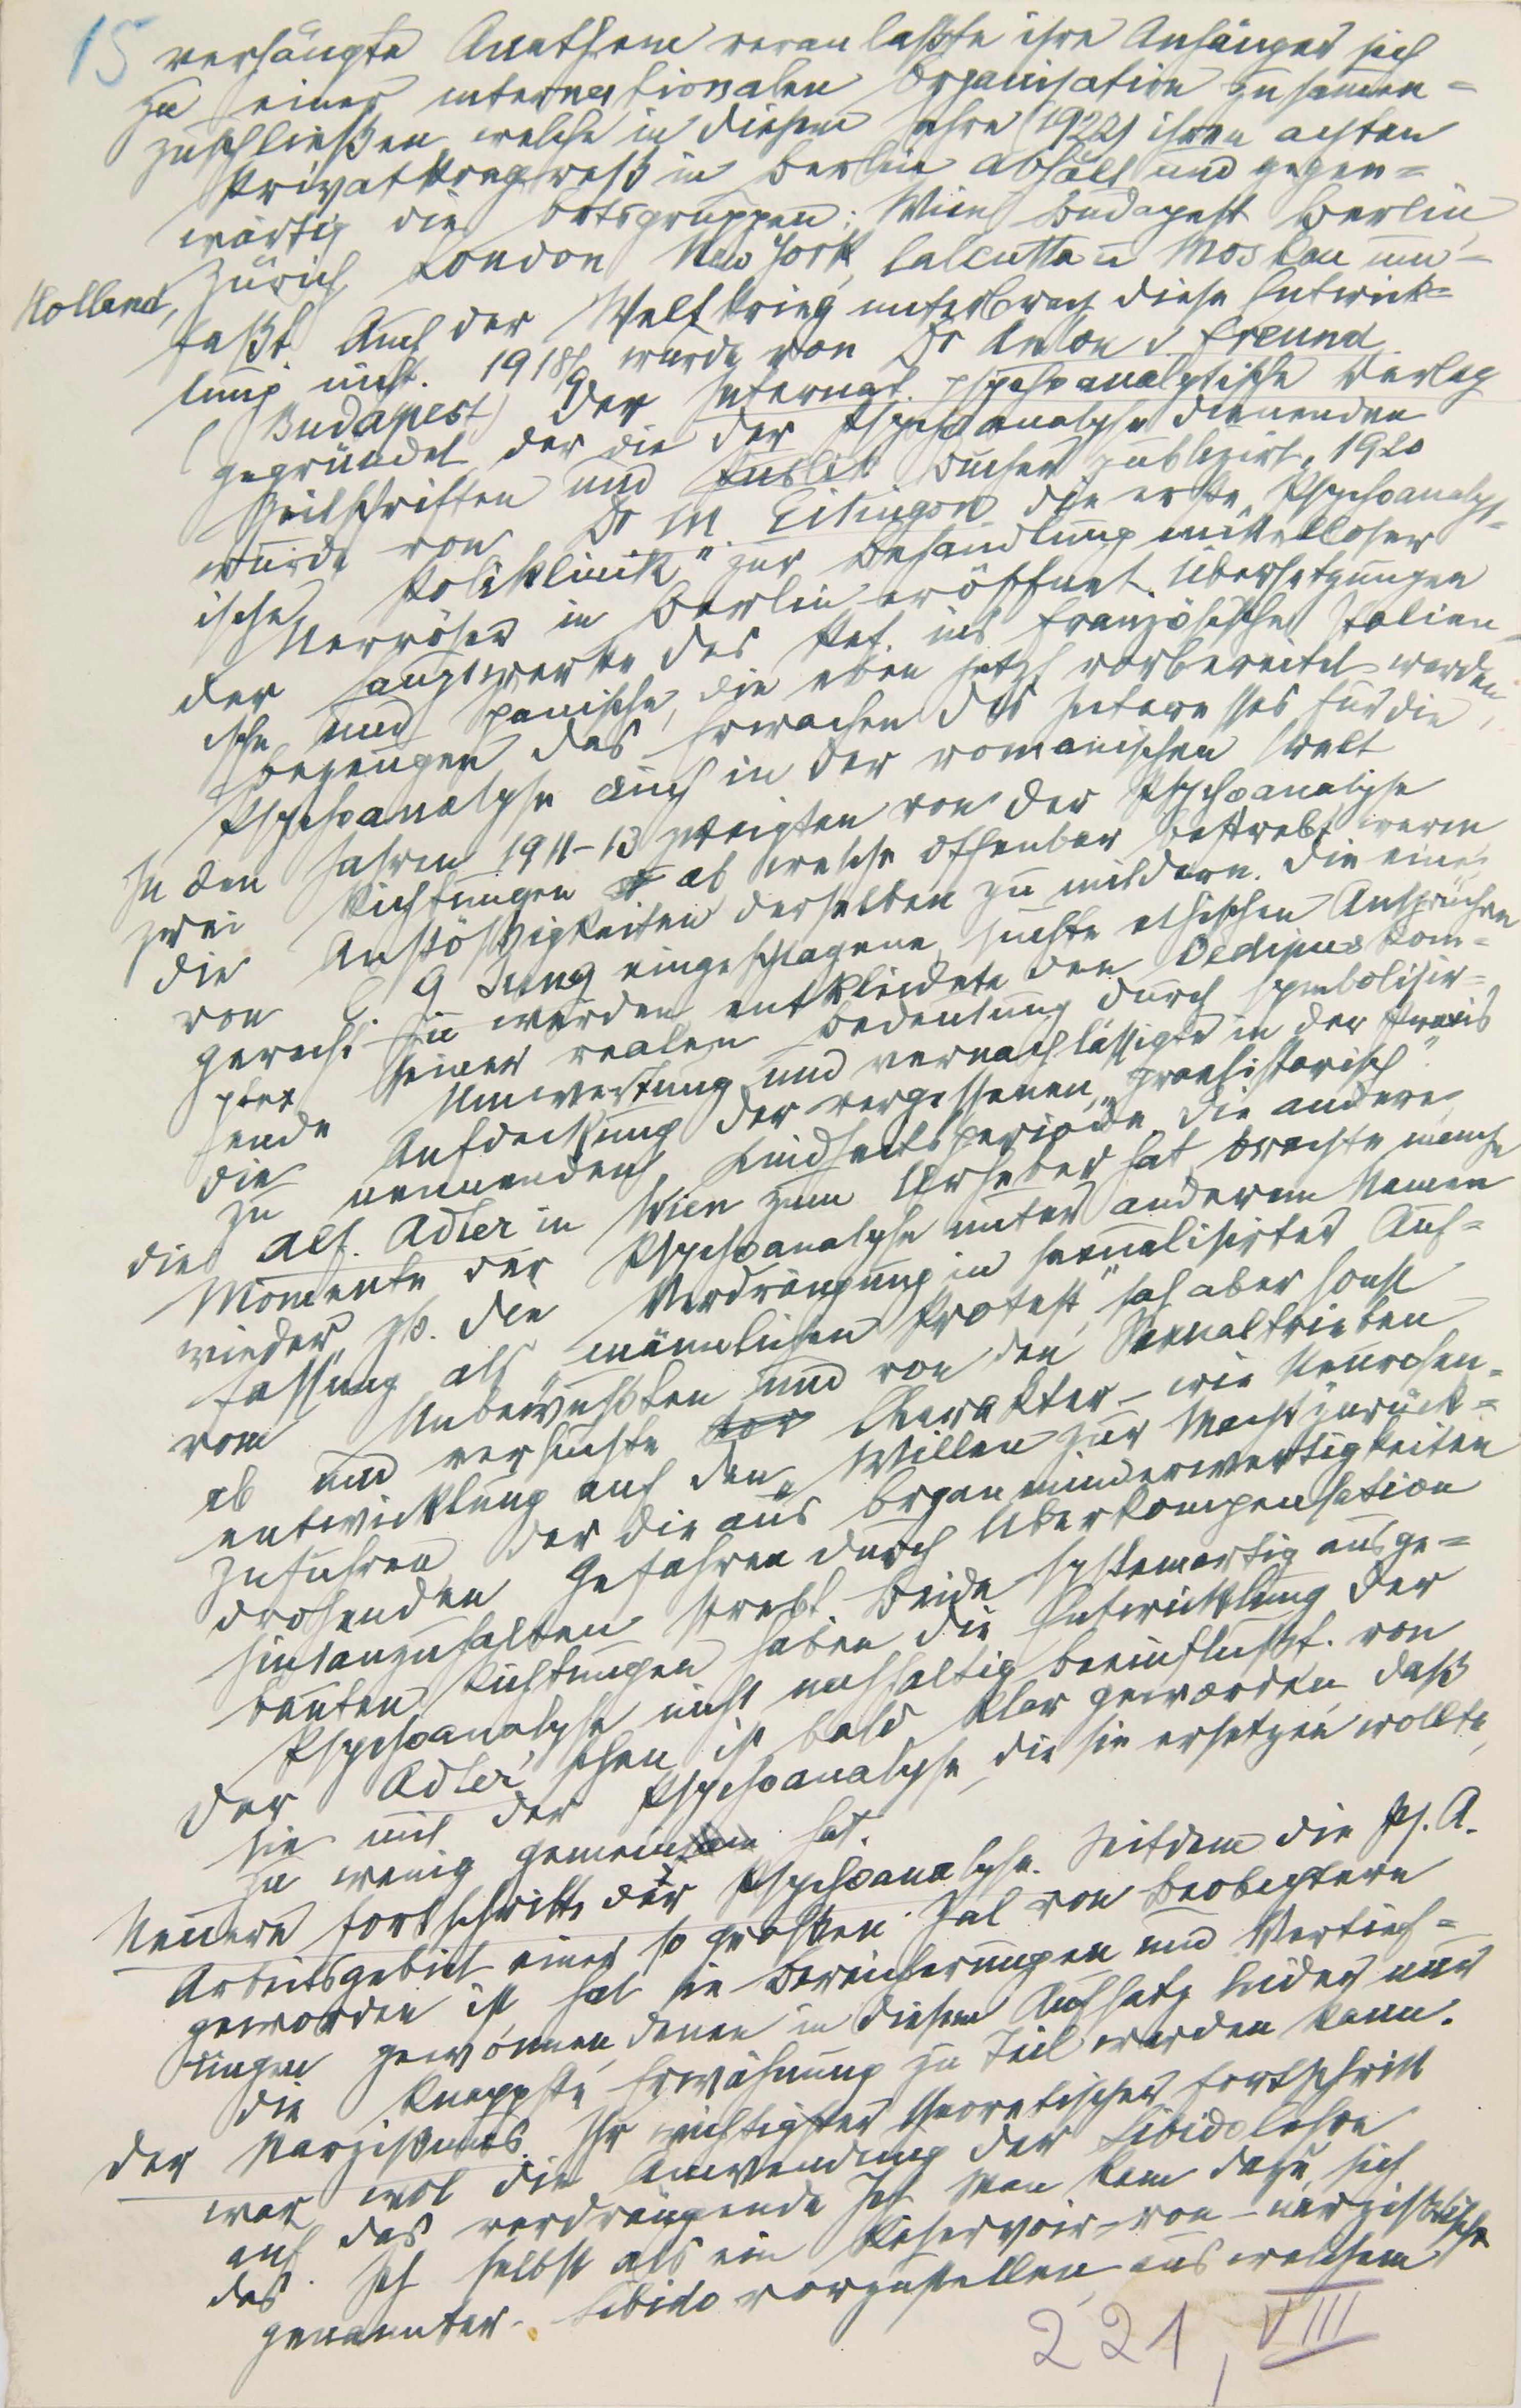 15 verhängte Anathem veranlaßte ihre Anhänger sich
zu einer internationalen Organisation zusammen=
zuschließen, welche in diesem Jahre (1922) ihren achten
Privatkongreß in Berlin abhält und gegen=
wärtig die Ortsgruppen: Wien Budapest Berlin,
Holland, Zürich London New York, Calcutta u Moskau um=
faßt. Auch der Weltkrieg unterbrach diese Entwick=
lung nicht. 1918/9 wurde von Dr Anton v. Freund
(Budapest) der Internat. psychoanalytische Verlag
gegründet der die der Psychoanalyse dienenden
Zeitschriften und Publik Bücher publizirt, 1920
wurde von Dr M. Eitingon die erste „Psychoanalyt=
ische Poliklinik" zur Behandlung mittelloser
Nervöser in Berlin eröffnet. Übersetzungen
der Hauptwerke des Ref. ins Französische, Italien=
ische und Spanische, die eben jetzt vorbereitet werden,
bezeugen das Erwachen des Interesses für die
Psychoanalyse auch in der romanischen Welt
In den Jahren 1911–13 zweigten von der Psychoanalyse
zwei Richtungen ab welche offenbar bestrebt waren
die Anstößigkeiten derselben zu mildern. Die eine,
von C. G Jung eingeschlagene, suchte ethischen Ansprüchen
gerecht zu werden, entkleidete den Oedipuskom=
plex seiner realen Bedeutung durch symbolisir=
ende Umwertung und vernachlässigte in der Praxis
die Aufdeckung der vergessenen, „praehistorisch"
zu nennenden Kindheitsperiode. Die andere,
die Alf. Adler in Wien zum Urheber hat, brachte manche
Momente der Psychoanalyse unter anderem Namen
wieder, zB. die Verdrängung in sexualisirter Auf=
fassung als „männlichen Protest", sah aber sonst
vom Unbewußten und von den Sexualtrieben
ab und versuchte Charakter- wie Neurosen=
entwicklung auf den „Willen zur Macht zurück=
zuführen, der die aus Organminderwertigkeiten
drohenden Gefahren durch Überkompensation
hintanzuhalten strebt. Beide systemartig ausge=
bauten Richtungen haben die Entwicklung der
Psychoanalyse nicht nachhaltig beeinflußt. von
der Adler'schen ist bald klar geworden, daß
sie mit der Psychoanalyse, die sie ersetzen wollte,
zu wenig gemein hat.
Neuere Fortschritte der Psychoanalyse. Seitdem die Ps. A.
Arbeitsgebiet einer so großen Zal von Beobachtern
geworden ist, hat sie Bereicherungen und Vertief=
ungen gewonnen, denen in diesem Aufsatz leider nur
die knappste Erwähnung zu Teil werden kann.
Der Narzißmus. Ihr wichtigster theoretischer Fortschritt
war wol die Anwendung der Libidolehre
auf das verdrängende Ich. Man kam dazu, sich
das Ich selbst als ein Reservoir von – narzißtisch
genannter – Libido vorzustellen, aus welchem
221, VIII